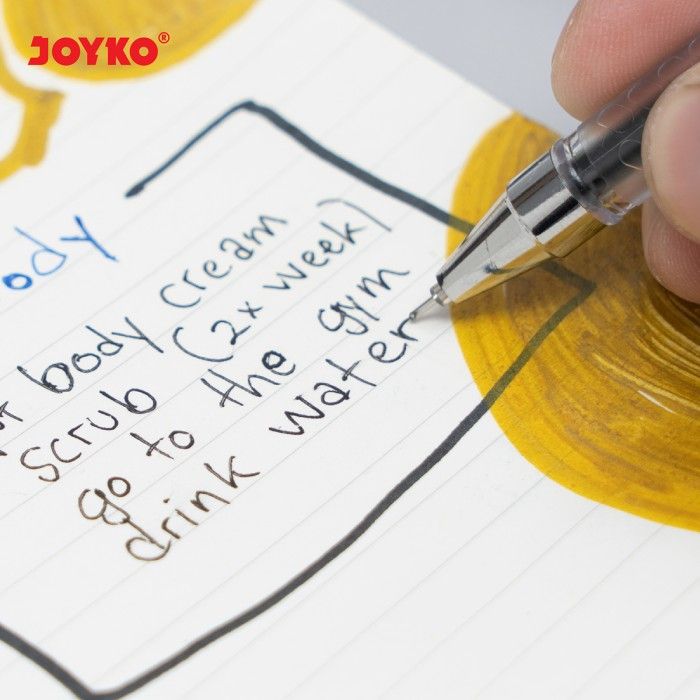 JOYKO®
body cream
scrub (2x week)
go to the gym
drink water